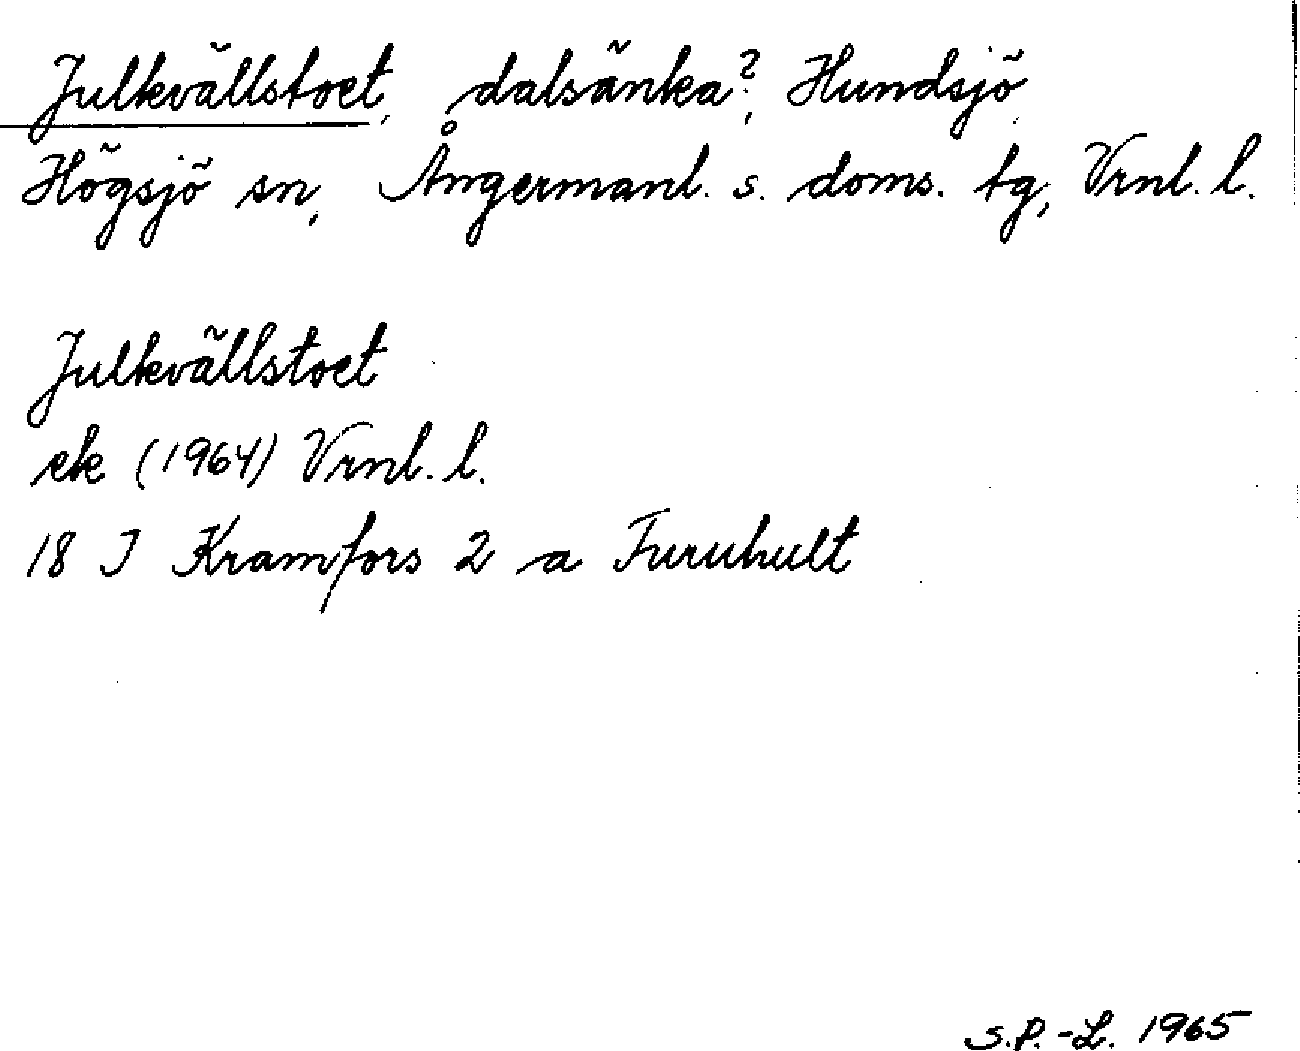 Julkvällstoet, dalsänka?, Hundsjö,
Högsjö sn, Ångermanl. s. doms. tg, Vrnl. l.
Julkvällstoet
ek (1964) Vrnl. l.
18 I Kramfors 2 a Furuhult
S.P.-L. 1965